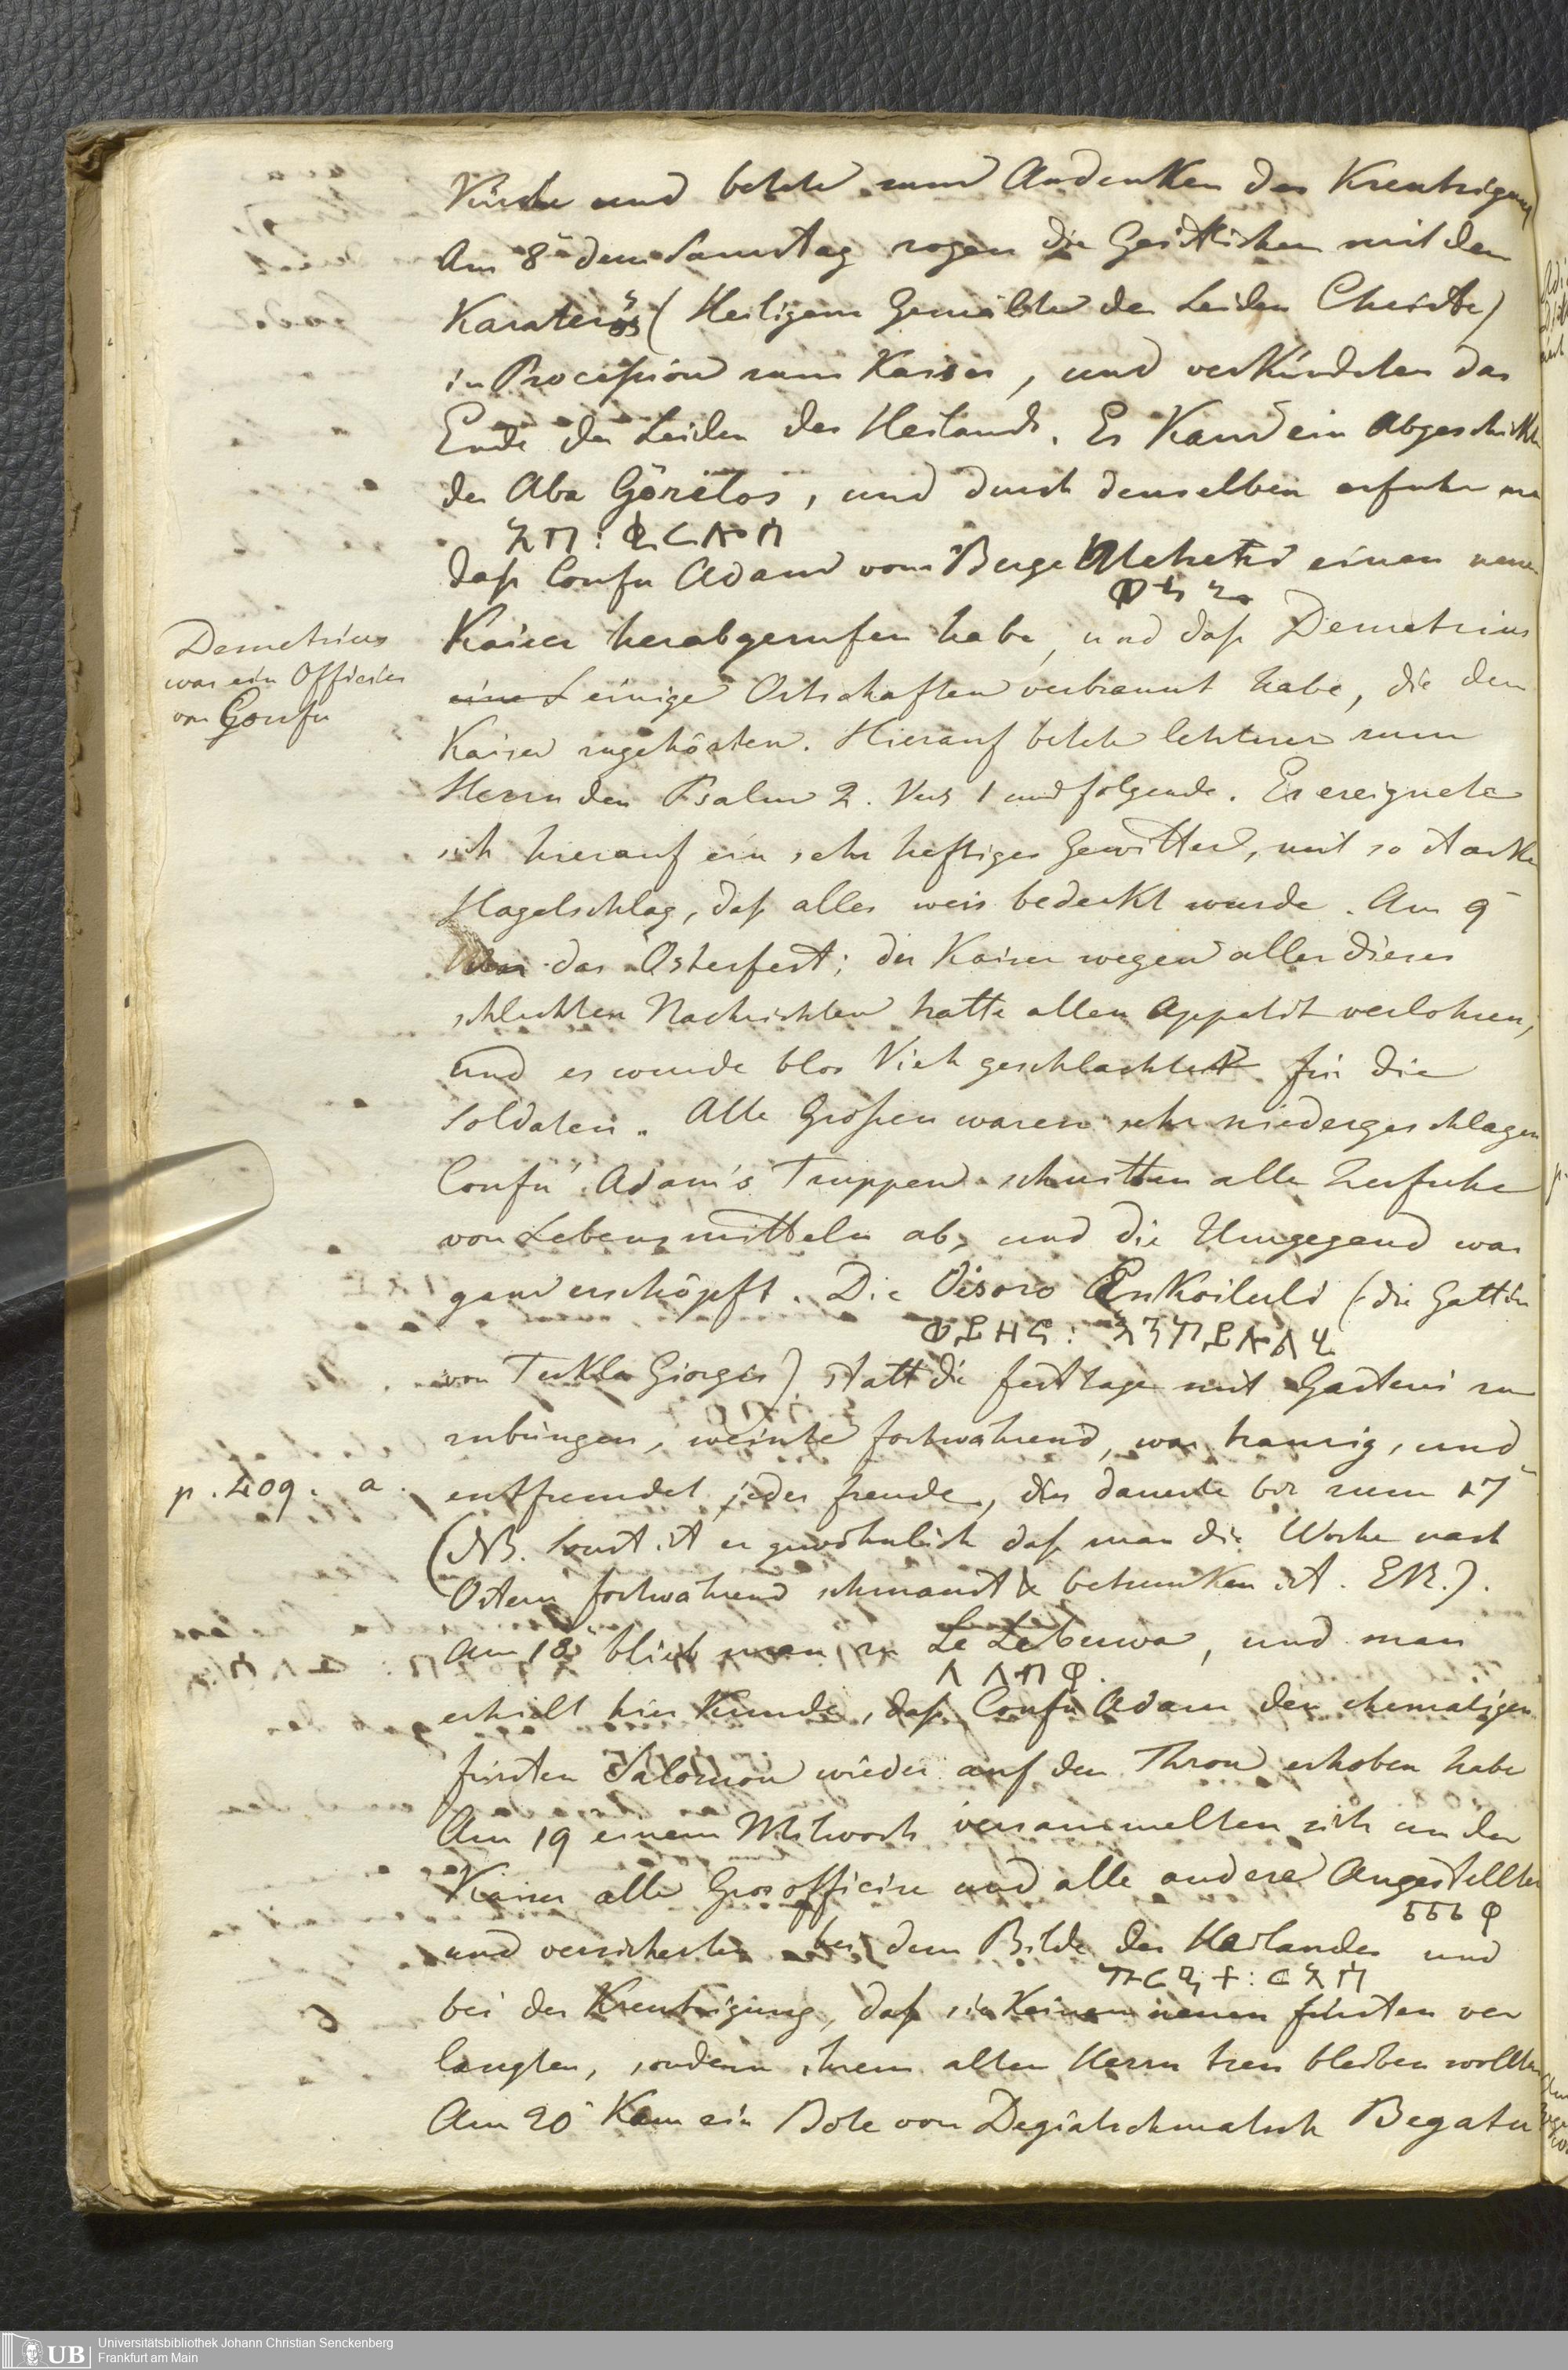 Kirche und betete zum Andenken der Kreutzigung
Am 8ͭ dem Samstag zogen die Geistlichen mit den
Karaterôs (Heiligem Gemälde der Leiden Christe)
in Procession zum Kaiser, und verkündeten das
Ende der Leiden des Heilands. Es Kam ein Abgeschikter
des Aba Gôrêlos, und durch denselben erfuhr man
አባ : ቄርሎስ
daß Confu Adam vom Berge Wehetni einen neuen
ወህኒ
Kaiser herabgerufen habe, und daß Demetrius
Demetrius
war ein Officier
von Gonfu
einige Ortschaften verbrannt habe, die dem
Kaiser zugehörten. Hierauf betete letzterer zum
Herrn den Psalm 2. Vers 1 und folgende. Es ereignete
sich hierauf ein sehr heftiges Gewitter, mit so starken
Hagelschlag, daß alles weis bedeckt wurde. Am 9
War das Osterfest; der Kaiser wegen aller dieser
schlechten Nachrichten hatte allen Appetit verlohren,
und es wurde blos Vieh geschlachtet für die
Soldaten. Alle Großen waren sehr niedergeschlagen
Confu Adam's Truppen schnitten alle Zufuhr
von Lebensmitteln ab, und die Umgegend war
ganz erschöpft. Die Oisoro Enkoileli (die Gattin
ወይዘሮ : እንኮይሉሊ
von Teckla Giorgis) statt die Festtage mit Gasterei zu
zubringen, weinte fortwährend, war traurig, und
p. 409. a. entfremdet jeder freude, dies dauerte bis zum 17
(NB. Sonst ist es gewöhnlich daß man die Woche nach
Ostern fortwährend schmaust & betrunken ist. ER.).
Am 18 blieb man zu Le Lebuwa, und man
ለ ለቡዋ
erhielt hier Kunde, daß Confu Adam den ehemaligen
fürsten Salomon wieder auf den Thron erhoben habe
Am 19 einem Mitwoch versammelten sich um den
Kaiser alle Grosofficire und alle andere Angestellten
und versicherten bei dem Bilde des Heilandes und
ኩርዓተ : ርእሱ
bei der Kreutzigung, daß sie Keinen neuen fürsten ver
langten, sondern ihrem alten Herrn treu bleiben wollten
Am 20 Kam ein Bote von Degiatschmatsch Begatu
Universitätsbibliothek Johann Christian Senckenberg
Frankfurt am Main
UB